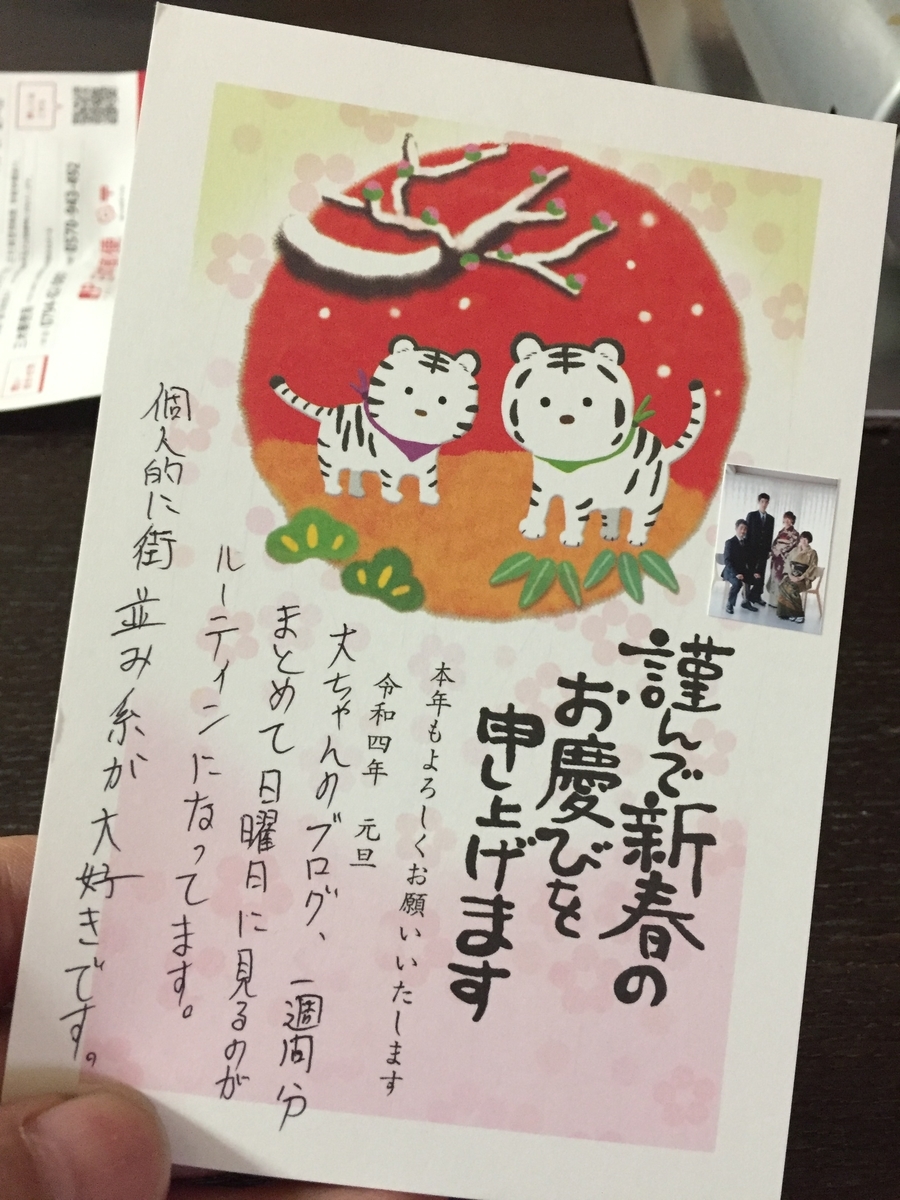 謹んで新春の
お慶びを
申し上げます
本年もよろしくお願いいたします
令和四年 元旦
大ちゃんのブログ、一週間分
まとめて日曜日に見るのが
ルーティンになってます。
個人的に街並み系が大好きです。